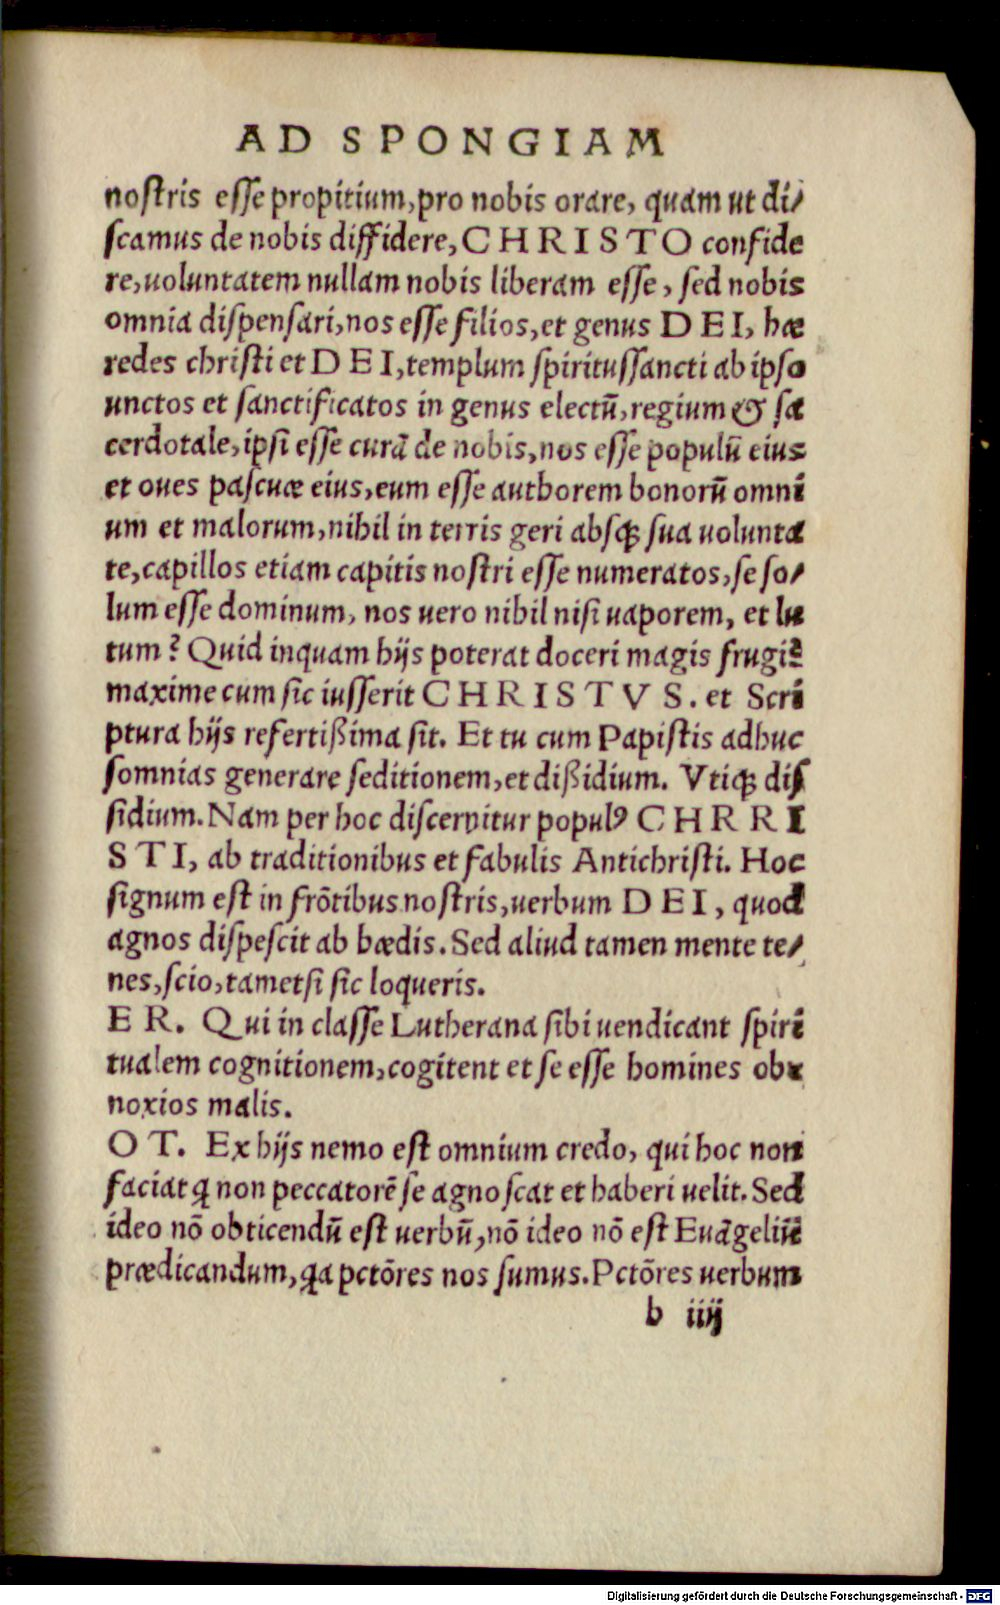 AD SPONGIAM
nostris esse propitium, pro nobis orare, quam ut di/
scamus de nobis diffidere, CHRISTO confide
re, uoluntatem nullam nobis liberam esse, sed nobis
omnia dispensari, nos esse filios, et genus DEI, hæ
redes christi et DEI, templum spiritussancti ab ipso
unctos et sanctificatos in genus electū, regium & sa
cerdotale, ipsi esse curā de nobis, nos esse populū eius
et oues pascuæ eius, eum esse authorem bonorū omni
um et malorum, nihil in terris geri absq; sua uolunta
te, capillos etiam capitis nostri esse numeratos, se so/
lum esse dominum, nos uero nihil nisi uaporem, et lu
tum? Quid inquam hijs poterat doceri magis frugi?
maxime cum sic iusserit CHRISTVS. et Scri
ptura hijs refertißima sit. Et tu cum Papistis adhuc
somnias generare seditionem, et dißidium. Vtiq; dis
sidium. Nam per hoc discernitur popul9 CHRRI
STI, ab traditionibus et fabulis Antichristi. Hoc
signum est in frōtibus nostris, uerbum DEI, quod
agnos dispescit ab hædis. Sed aliud tamen mente te/
nes, scio, tametsi sic loqueris.
ER. Qui in classe Lutherana sibi uendicant spiri
tualem cognitionem, cogitent et se esse homines ob
noxios malis.
OT. Ex hijs nemo est omnium credo, qui hoc non
faciat ꝗ non peccatorē se agnoscat et haberi uelit. Sed
ideo nō obticendū est uerbū, nō ideo nō est Euāgeliū
prædicandum, ꝗa pctōres nos sumus. Pctōres uerbum
b iiij
Digitalisierung gefördert durch die Deutsche Forschungsgemeinschaft - DFG